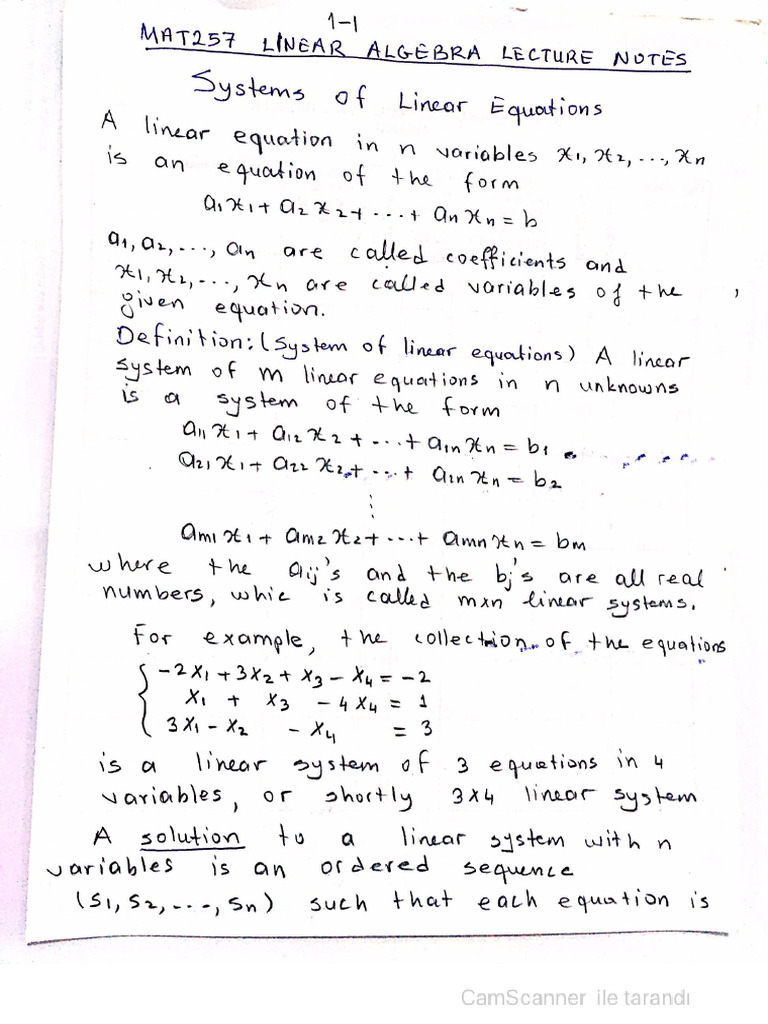 1-1
MAT257 LINEAR ALGEBRA LECTURE NOTES
Systems of Linear Equations
A linear equation in n variables x1, x2, ..., xn
is an equation of the form
a1x1 + a2x2 + ... + anxn = b
a1, a2, ..., an are called coefficients and
x1, x2, ..., xn are called variables of the
given equation.
Definition: (System of linear equations) A linear
system of m linear equations in n unknowns
is a system of the form
a11x1 + a12x2 + ... + a1nxn = b1
a21x1 + a22x2 + ... + a2nxn = b2
⋮
am1x1 + am2x2 + ... + amnxn = bm
where the aij's and the bj's are all real
numbers, whic is called mxn linear systems.
For example, the collection of the equations
-2x1 + 3x2 + x3 - x4 = -2
x1 + x3 - 4x4 = 1
3x1 - x2 - x4 = 3
is a linear system of 3 equations in 4
variables, or shortly 3x4 linear system
A solution to a linear system with n
variables is an ordered sequence
(s1, s2, ..., sn) such that each equation is
CamScanner ile tarandı